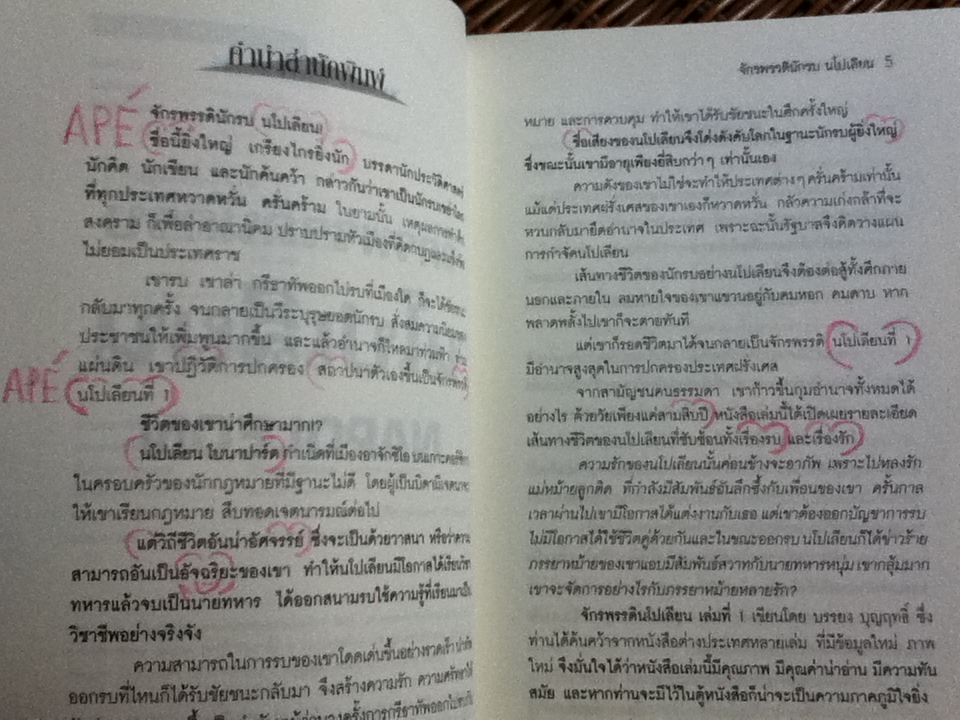 คำนำสำนักพิมพ์
APÉ
จักรพรรดินักรบ นโปเลียน!
ชื่อนี้ยิ่งใหญ่ เกรียงไกรยิ่งนัก บรรดานักประวัติศาสตร์
นักคิด นักเขียน และนักค้นคว้า กล่าวกันว่าเขาเป็นนักรบ
ที่ทุกประเทศหวาดหวั่น ครั่นคร้าม ในยามนั้น เหตุผลการทำ
สงคราม ก็เพื่อล่าอาณานิคม ปราบปรามหัวเมืองที่คิดกบฏและแข็งข้อ
ไม่ยอมเป็นประเทศราช
เขารบ เขาล่า กรีธาทัพออกไปรบที่เมืองใด ก็จะได้ชัยชนะ
กลับมาทุกครั้ง จนกลายเป็นวีระบุรุษยอดนักรบ สั่งสมความนิยมของ
ประชาชนให้เพิ่มพูนมากขึ้น และแล้วอำนาจก็ไหลมาท่วมฟ้า ท่วม
แผ่นดิน เขาปฏิวัติการปกครอง สถาปนาตัวเองขึ้นเป็นจักรพรรดิ
APÉ
นโปเลียนที่ 1
ชีวิตของเขาน่าศึกษามาก!?
นโปเลียน โบนาปาร์ต กำเนิดที่เมืองอาจักซิโอ บนเกาะคอร์ซิกา
ในครอบครัวของนักกฎหมายที่มีฐานะไม่ดี โดยผู้เป็นบิดามีเจตนาจะ
ให้เขาเรียนกฎหมาย สืบทอดเจตนารมณ์ต่อไป
แต่วิถีชีวิตอันน่าอัศจรรย์ ซึ่งจะเป็นด้วยวาสนา หรือว่าความ
สามารถอันเป็นอัจฉริยะของเขา ทำให้นโปเลียนมีโอกาสได้เรียนวิชา
ทหารแล้วจบเป็นนายทหาร ได้ออกสนามรบใช้ความรู้ที่เรียนมาเป็น
วิชาชีพอย่างจริงจัง
ความสามารถในการรบของเขาโดดเด่นขึ้นอย่างรวดเร็ว
ออกรบที่ไหนก็ได้รับชัยชนะกลับมา จึงสร้างความรัก ความศรัทธาให้
จักรพรรดินักรบ นโปเลียน 5
หมาย และการควบคุม ทำให้เขาได้รับชัยชนะในศึกครั้งใหญ่
ชื่อเสียงของนโปเลียนจึงโด่งดังคับโลกในฐานะนักรบผู้ยิ่งใหญ่
ซึ่งขณะนั้นเขามีอายุเพียงยี่สิบกว่าๆ เท่านั้นเอง
ความดังของเขาไม่ใช่จะทำให้ประเทศต่างๆ ครั่นคร้ามเท่านั้น
แม้แต่ประเทศฝรั่งเศสของเขาเองก็หวาดหวั่น กลัวความเก่งกล้าที่จะ
หวนกลับมายึดอำนาจในประเทศ เพราะฉะนั้นรัฐบาลจึงคิดวางแผน
การกำจัดนโปเลียน
เส้นทางชีวิตของนักรบอย่างนโปเลียนจึงต้องต่อสู้ทั้งศึกภาย
นอกและภายใน ลมหายใจของเขาแขวนอยู่กับคมหอก คมดาบ หาก
พลาดพลั้งไปเขาก็จะตายทันที
แต่เขาก็รอดชีวิตมาได้จนกลายเป็นจักรพรรดิ นโปเลียนที่ 1
มีอำนาจสูงสุดในการปกครองประเทศฝรั่งเศส
จากสามัญชนคนธรรมดา เขาก้าวขึ้นกุมอำนาจทั้งหมดได้
อย่างไร ด้วยวัยเพียงแค่สามสิบปี หนังสือเล่มนี้ได้เปิดเผยรายละเอียด
เส้นทางชีวิตของนโปเลียนที่ซับซ้อนทั้งเรื่องรบ และเรื่องรัก
ความรักของนโปเลียนนั้นค่อนข้างจะอาภัพ เพราะไปหลงรัก
แม่หม้ายลูกติด ที่กำลังมีสัมพันธ์อันลึกซึ้งกับเพื่อนของเขา ครั้นกาล
เวลาผ่านไปเขามีโอกาสได้แต่งงานกับเธอ แต่เขาต้องออกบัญชาการรบ
ไม่มีโอกาสได้ใช้ชีวิตคู่ด้วยกันและในขณะออกรบ นโปเลียนก็ได้ข่าวร้าย
ภรรยาหม้ายของเขาแอบมีสัมพันธ์สวาทกับนายทหารหนุ่ม เขากลุ้มมาก
เขาจะจัดการอย่างไรกับภรรยาหม้ายหลายรัก?
จักรพรรดินโปเลียน เล่มที่ 1 เขียนโดย บรรยง บุญฤทธิ์ ซึ่ง
ท่านได้ค้นคว้าจากหนังสือต่างประเทศหลายเล่ม ที่มีข้อมูลใหม่ ภาพ
ใหม่ จึงมั่นใจได้ว่าหนังสือเล่มนี้มีคุณภาพ มีคุณค่าน่าอ่าน มีความทัน
สมัย และหากท่านจะมีไว้ในตู้หนังสือก็น่าจะเป็นความภาคภูมิใจยิ่ง